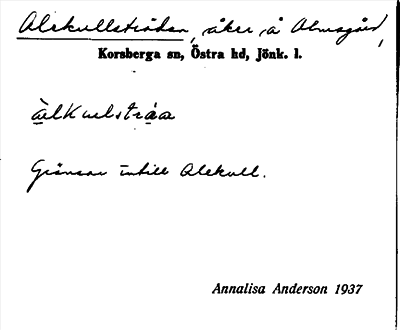 Alekullsträdan, åker å Almsgård,
Korsberga sn, Östra hd, Jönk. l.
àlKulstràa
Gränsar intill Alekull.
Annalisa Anderson 1937